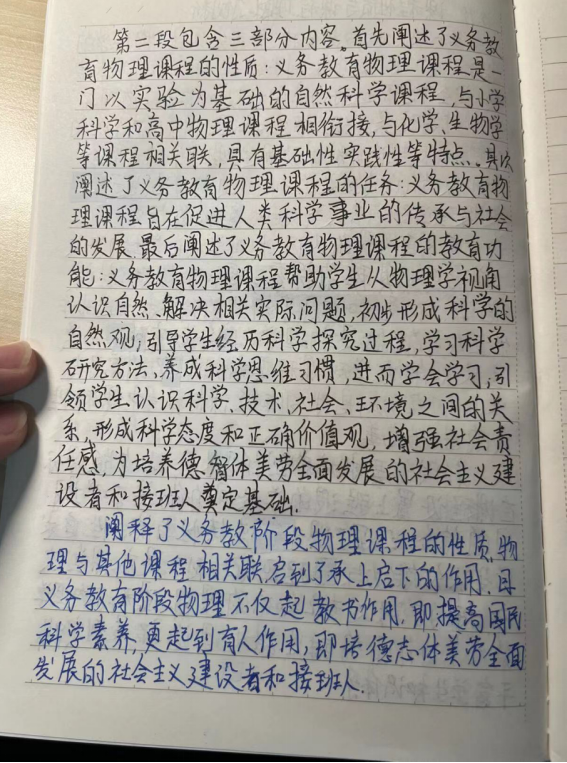 第二段包含三部分内容。首先阐述了义务教
育物理课程的性质:义务教育物理课程是一
门以实验为基础的自然科学课程,与小学
科学和高中物理课程相衔接,与化学、生物学
等课程相关联,具有基础性、实践性等特点。其次
阐述了义务教育物理课程的任务:义务教育物
理课程旨在促进人类科学事业的传承与社会
的发展.最后阐述了义务教育物理课程的教育功
能:义务教育物理课程帮助学生从物理学视角
认识自然、解决相关实际问题,初步形成科学的
自然观;引导学生经历科学探究过程,学习科学
研究方法、养成科学思维习惯,进而学会学习;引
领学生认识科学、技术、社会、环境之间的关
系,形成科学态度和正确价值观,增强社会责
任感,为培养德智体美劳全面发展的社会主义建
设者和接班人奠定基础.
阐释了义务教阶段物理课程的性质,物
理与其他课程相关联,启到了承上启下的作用.且
义务教育阶段物理不仅起教书作用,即提高国民
科学素养,更起到育人作用,即培德志体美劳全面
发展的社会主义建设者和接班人.